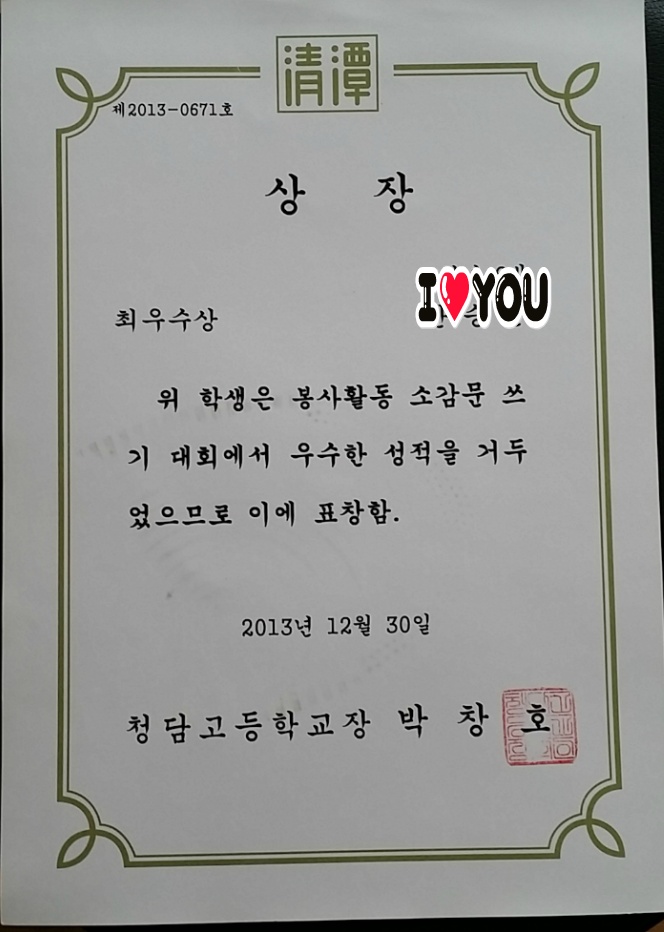 清潭
제2013-0671호
상 장
최우수상
I♥YOU
위 학생은 봉사활동 소감문 쓰
기 대회에서 우수한 성적을 거두
었으므로 이에 표창함.
2013년 12월 30일
청담고등학교장 박 창 호